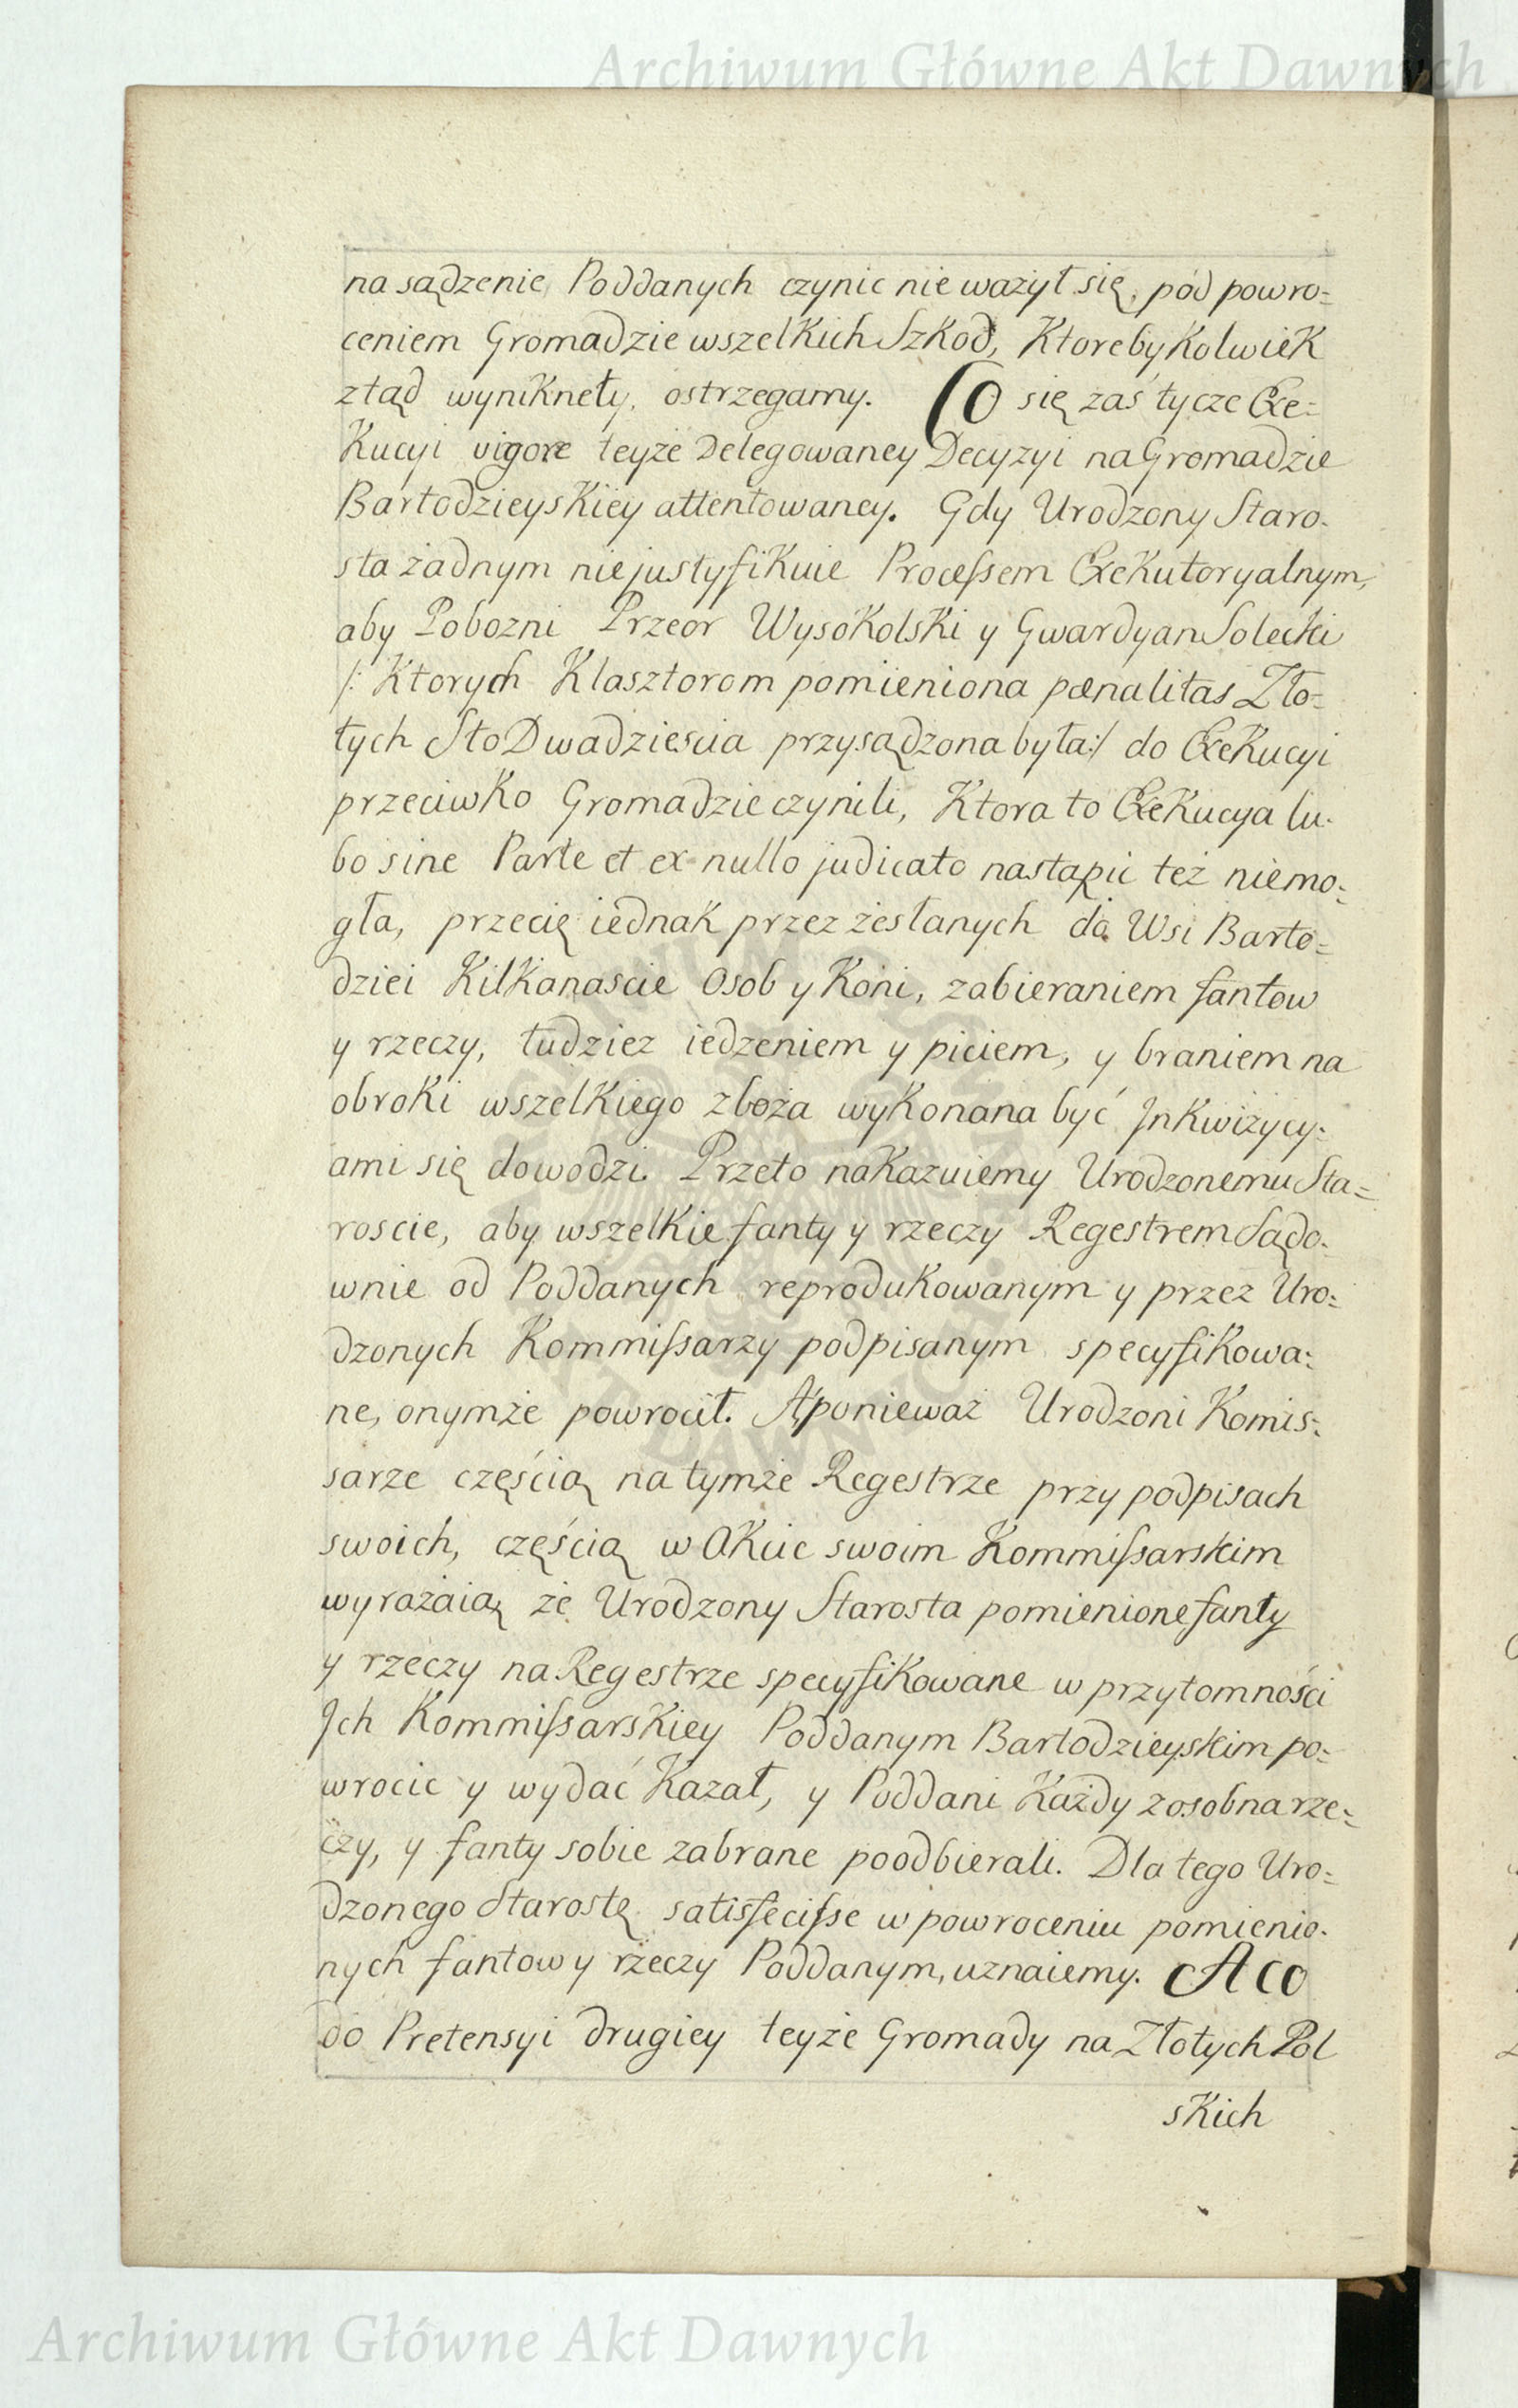 Archiwum Główne Akt Dawnych
na sądzenie Poddanych czynic nie ważył się, pod powro=
ceniem Gromadzie wszelkich Szkod, Ktoreby Kolwiek
ztąd wyniknęły, ostrzegamy. Co się zaś tycze Exe=
Kucyi vigore teyże Delegowaney Decyzyi na Gromadzie
Bartodzieyskiey attentowaney. Gdy Urodzony Staro=
sta żadnym nie justyfikuie Processem Exekutoryalnym,
aby Pobozni Przeor Wysokolski y Gwardyan Solecki
/: Ktorych Klasztorom pomieniona pœnalitas Zło=
tych Sto Dwadziescia przysądzona była :/ do Exekucyi
przeciwko Gromadzie czynili, Ktora to Exekucya lu=
bo sine Parte et ex nullo judicato nastąpic też niemo=
gła, przecię iednak przez zesłanych do Wsi Barto=
dziei Kilkanascie Osob y Koni, zabieraniem fantow
y rzeczy, tudziez iedzeniem y piciem, y braniem na
obroki wszelkiego zboża wykonana być Jnkwizycy=
ami się dowodzi. Przeto nakazuiemy Urodzonemu Sta=
roscie, aby wszelkie fanty y rzeczy Regestrem Sądo=
wnie od Poddanych reprodukowanym y przez Uro=
dzonych Kommissarzy podpisanym specyfikowa=
ne, onymże powrocił. A ponieważ Urodzoni Komis=
sarze częścią na tymże Regestrze przy podpisach
swoich, częścią w Akcie swoim Kommissarskim
wyrażaią że Urodzony Starosta pomienione fanty
y rzeczy na Regestrze specyfikowane w przytomności
Jch Kommissarskiey Poddanym Bartodzieyskim po=
wrocic y wydać Kazał, y Poddani Każdy zosobna rze=
czy, y fanty sobie zabrane poodbierali. Dla tego Uro=
dzonego Starostę satisfecisse w powroceniu pomienio=
nych fantow y rzeczy Poddanym, uznaiemy. A co
do Pretensyi drugiey teyże Gromady na Złotych Pol
skich
Archiwum Główne Akt Dawnych